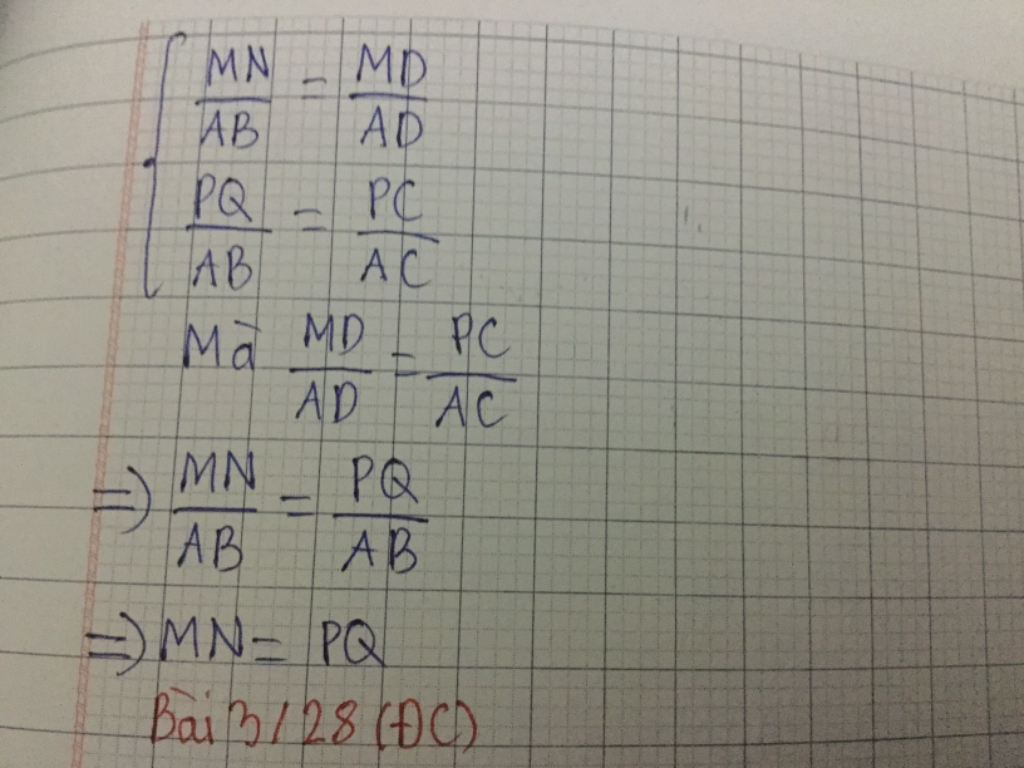 MN/AB = MD/AD
PQ/AB = PC/AC
Mà MD/AD = PC/AC
=> MN/AB = PQ/AB
=> MN = PQ
Bài 3/28 (ĐC)